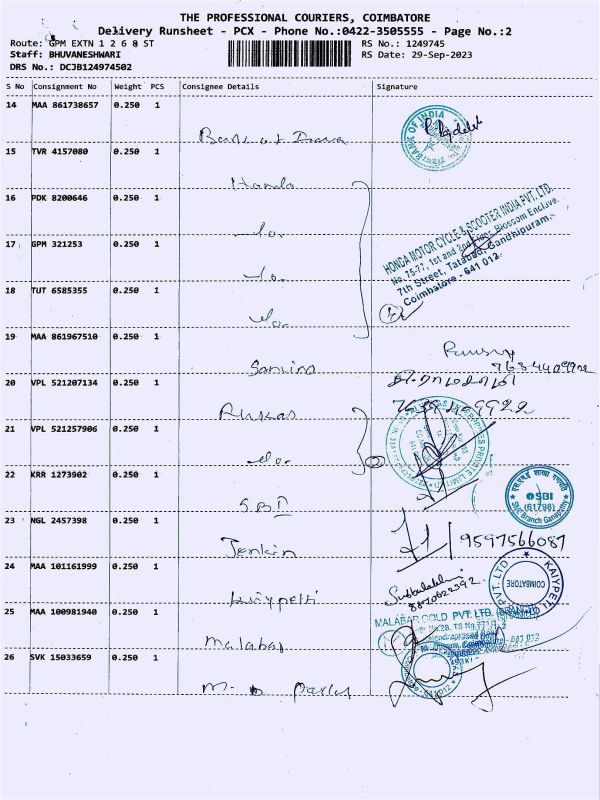 THE PROFESSIONAL COURIERS, COIMBATORE
Delivery Runsheet - PCX - Phone No.:0422-3505555 - Page No.:2
Route: GPM EXTN 1 2 6 8 ST
RS No.: 1249745
Staff: BHUVANESHWARI
RS Date: 29-Sep-2023
DRS No.: DCJB124974502
S No Consignment No Weight PCS Consignee Details Signature
14 MAA 861738657 0.250 1
BANK OF INDIA
Bank of India
15 TVR 4157080 0.250 1
Honda
16 PDK 8200646 0.250 1
do.
HONDA MOTOR CYCLE & SCOOTER INDIA PVT. LTD.
No. 75-77, 1st and 2nd Floor, Blossom Enclave,
7th Street, Tatabad, Gandhipuram,
Coimbatore - 641 012.
17 GPM 321253 0.250 1
do.
18 TUT 6585355 0.250 1
do.
19 MAA 861967510 0.250 1
20 VPL 521207134 0.250 1
21 VPL 521257906 0.250 1
do.
PRIVATE LIMITED
22 KRR 1273902 0.250 1
SBI
SBI
(61798)
SME Branch Ganapathy
23 NGL 2457398 0.250 1
9597566087
24 MAA 101161999 0.250 1
PVT. LTD
KAIYPETI
COIMBATORE
25 MAA 100981940 0.250 1
MALABAR GOLD PVT. LTD.
Malabar
26 SVK 15033659 0.250 1